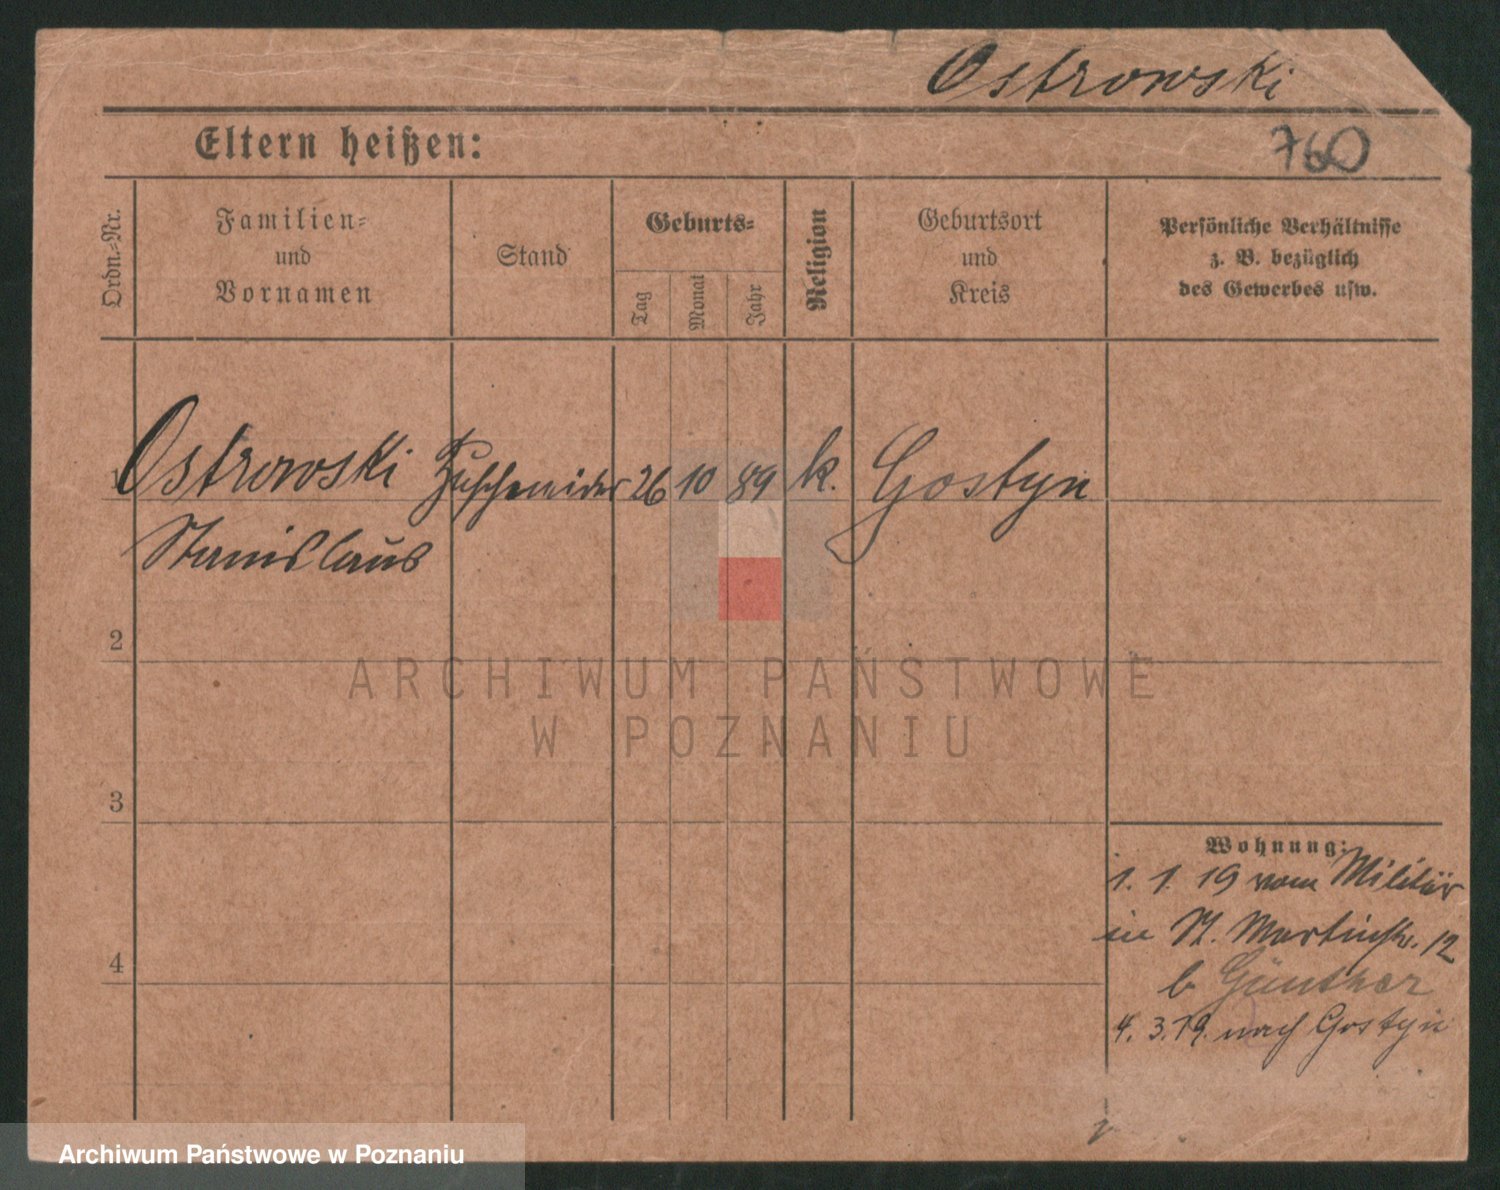 Ostrowski
Eltern heißen:
760
Ordn.=Nr.
Familien=
und
Vornamen
Stand
Geburts=
Tag
Monat
Jahr
Religion
Geburtsort
und
Kreis
Persönliche Verhältnisse
z. B. bezüglich
des Gewerbes usw.
1 Ostrowski Zuschneider 26 10 89 k. Gostyn
Stanislaus
2
3
4
Wohnung:
1. 1. 19 vom Militär
in St. Martinstr. 12
b Günther
4. 3. 19. nach Gostyn
ARCHIWUM PAŃSTWOWE
W POZNANIU
Archiwum Państwowe w Poznaniu